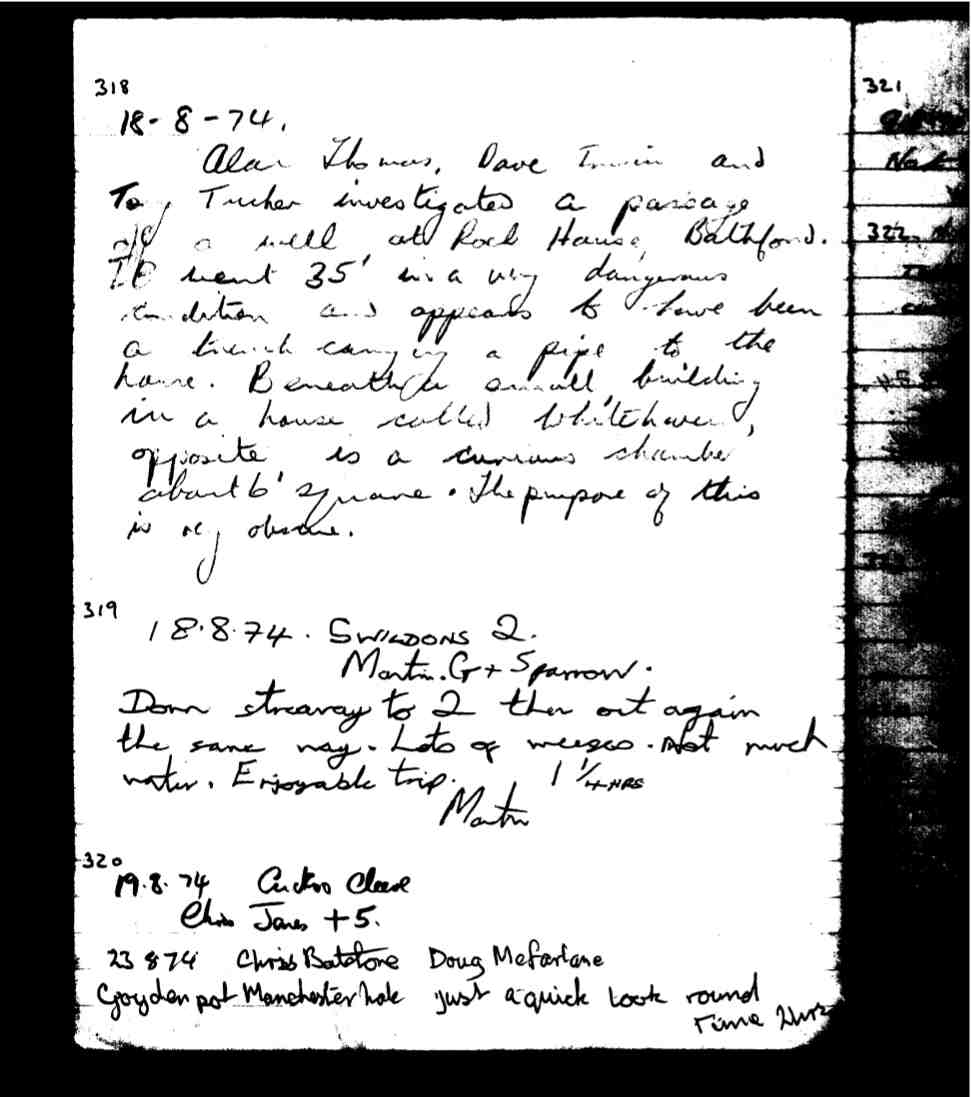 318
18-8-74.
Alan Thomas, Dave Irwin and
Tucker investigated a passage
off a well at Rock House, Bathford.
It went 35' in a very dangerous
condition and appears to have been
a trench carrying a pipe to the
house. Beneath a small building
in a house called Whitehaven,
opposite is a curious chamber
about 6' square. The purpose of this
is very obscure.
319
18.8.74. SWILDONS 2.
Martin.G + Sparrow.
Down streamway to 2 then out again
the same way. Lots of weegees. Not much
water. Enjoyable trip. 1 1/4 HRS
Martin
320
19.8.74 Cuckoo Cleeve
Chris James +5.
23 8 74 Chris Batstone Doug McFarlane
Goyden pot Manchester hole just a quick look round
Time 2hrs
321
322